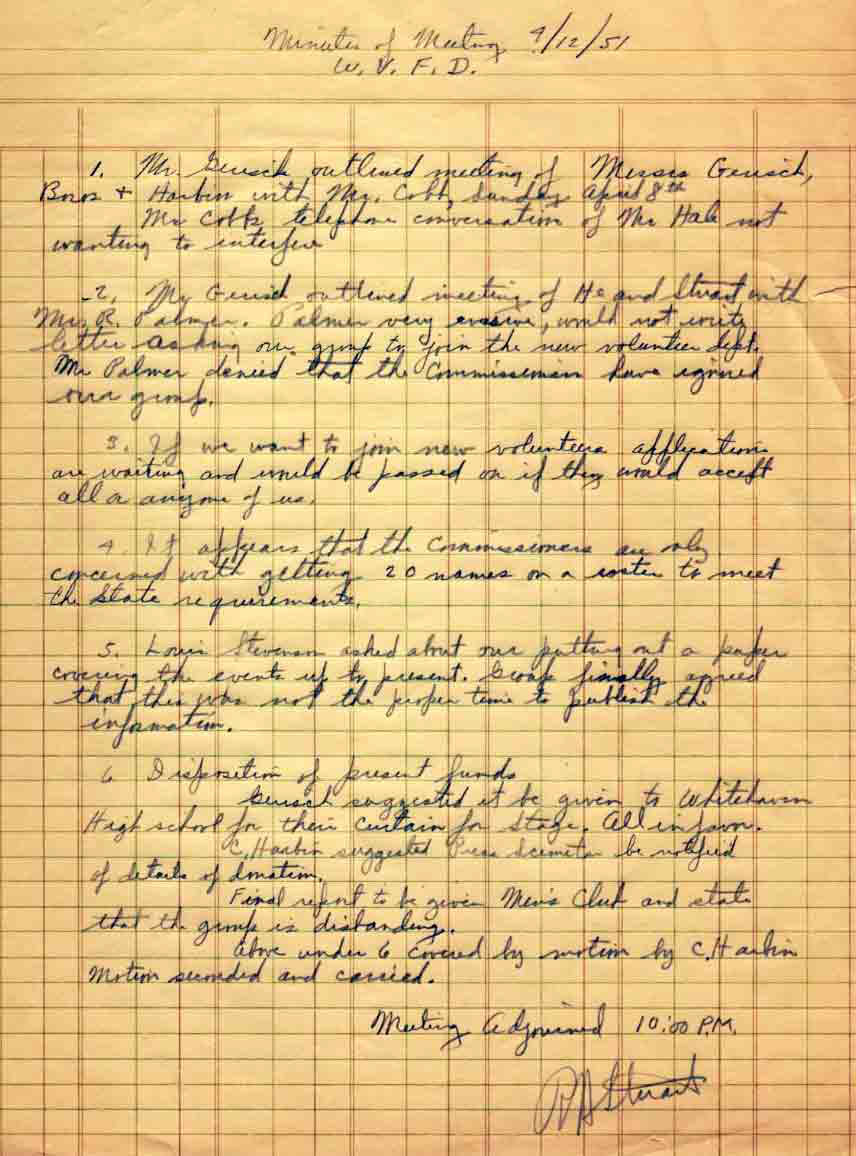 Minutes of Meeting 4/12/51
W. V. F. D.
1. Mr. Gerisch outlined meeting of Messrs Gerisch,
Boros + Harbin with Mr. Cobb, Sunday April 8th
Mr Cobbs telephone conversation of Mr Hale not
wanting to interfere
2. Mr Gerisch outlined meeting of He and Stuart with
Mr. R. Palmer. Palmer very evasive, would not write
letter asking our group to join the new volunteer dept.
Mr Palmer denied that the Commissioners have ignored
our group.
3. If we want to join new volunteers applications
are waiting and would be passed on if they would accept
all or anyone of us.
4. It appears that the commissioners are only
concerned with getting 20 names on a roster to meet
the State requirements.
5. Louis Stevenson asked about our putting out a paper
covering the events up to present. Group finally agreed
that this was not the proper time to publish the
information.
6 Disposition of present funds
Gerisch suggested it be given to Whitehaven
High school for their curtain for stage. All in favor.
C. Harbin suggested Press Scimitar be notified
of details of donation.
Final report to be given Men's Club and state
that the group is disbanding.
Above under 6 covered by motion by C. Harbin
Motion seconded and carried.
Meeting Adjourned 10:00 P.M.
Stuart